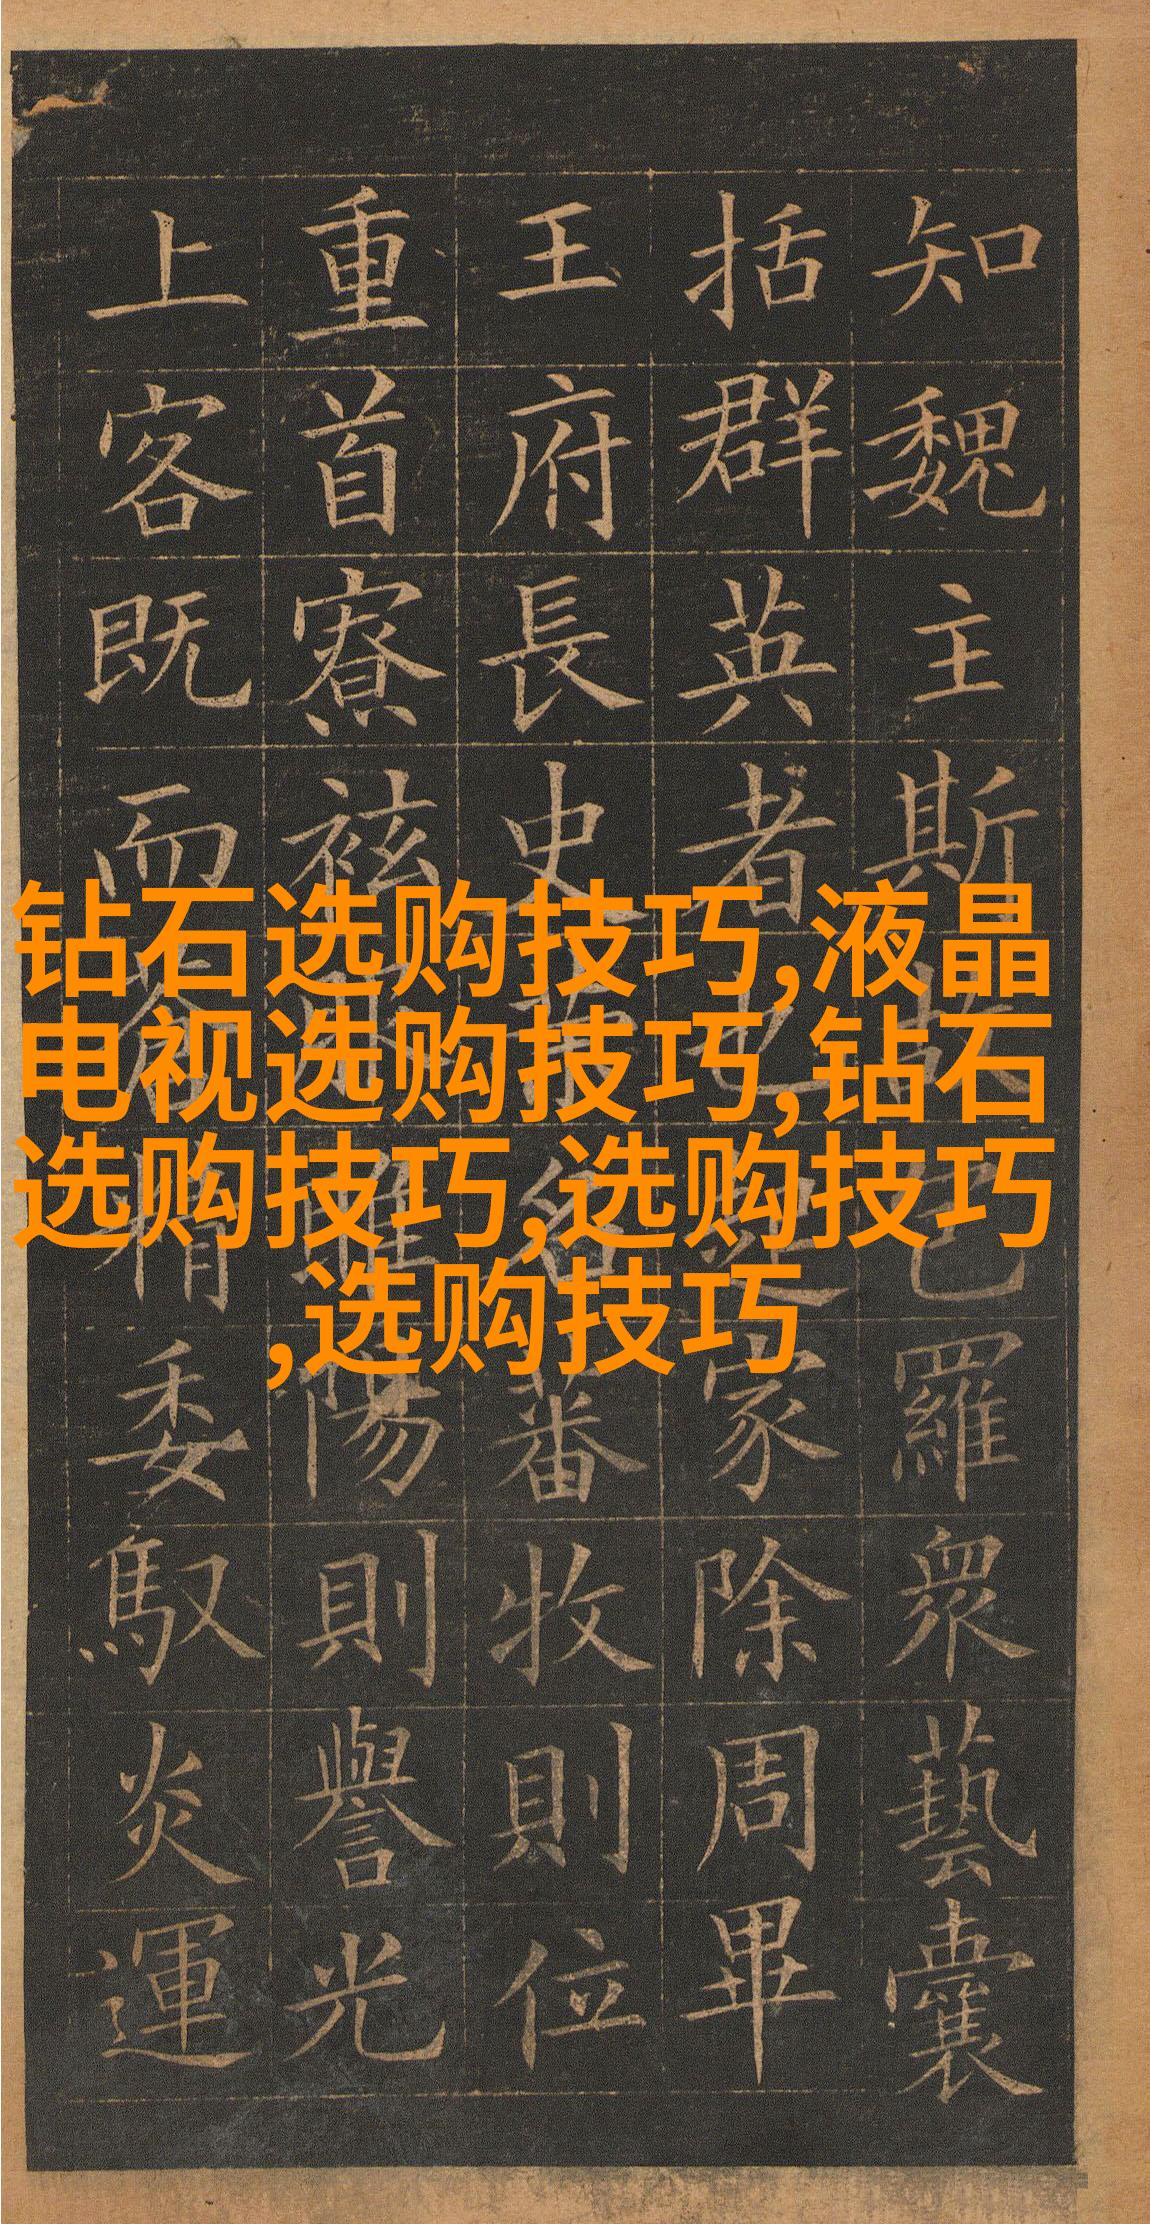 知魏主斯故包羅衆藝囊
括群英者也起家除周畢
王府長史名蕃牧則位
重首寮袨睢陽則譽光
上客既而情委馭炎運
钻石选购技巧,液晶
电视选购技巧,钻石
选购技巧,选购技巧
,选购技巧